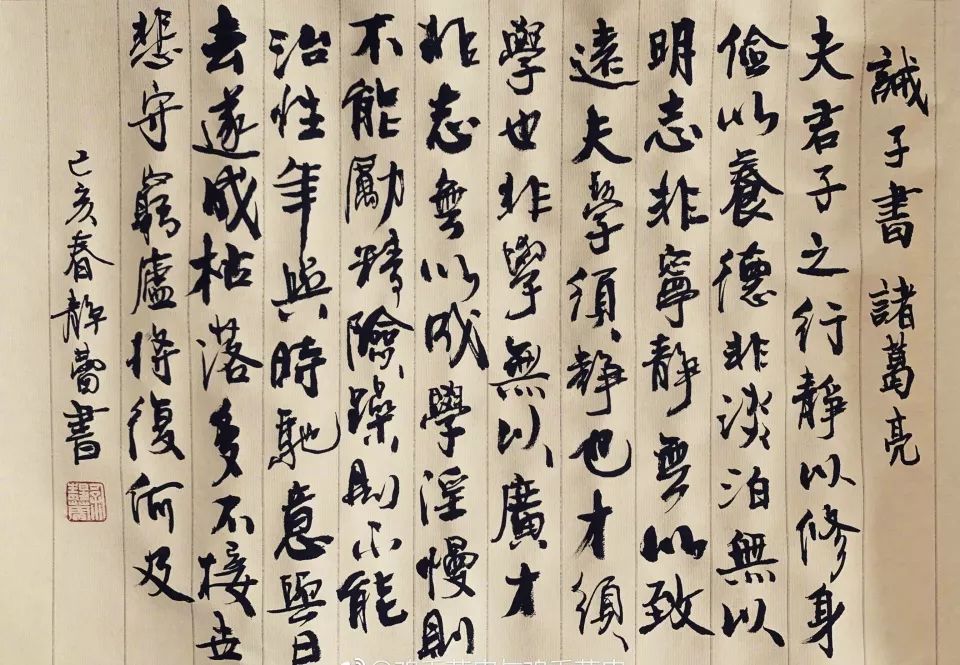 誡子書 諸葛亮
夫君子之行靜以修身
儉以養德非淡泊無以
明志非寧靜無以致
遠夫學須靜也才須
學也非學無以廣才
非志無以成學淫慢則
不能勵精險躁則不能
治性年與時馳意與日
去遂成枯落多不接世
悲守窮廬將復何及
己亥春靜蕾書